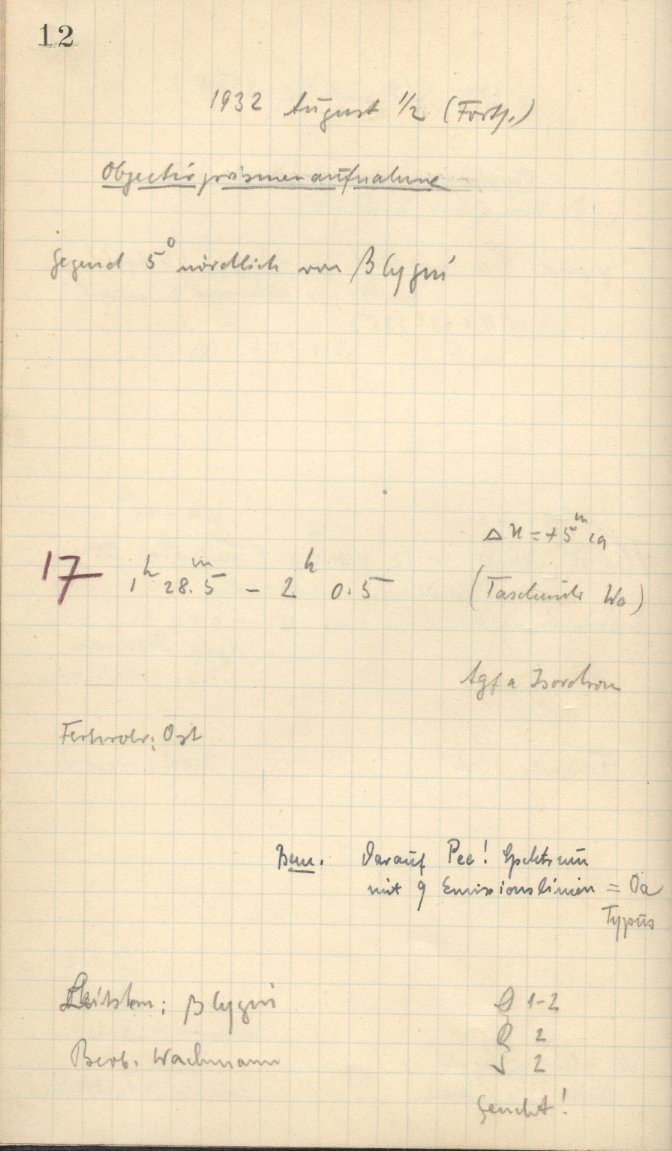 12
1932 August 1/2 (Forts.)
Objectivprismenaufnahme
Gegend 5° nördlich von β Cygni
17 1h 28.5m – 2h 0.5
Δu = +5m ca
(Taschenuhr Wa)
Agfa Isochrom
Fernrohr: Ost
Bem. Darauf Pec! Spektrum
mit 9 Emissionslinien = Oa
Typus
Leitstern: β Cygni
Beob. Wachmann
1-2
2
2
feucht!